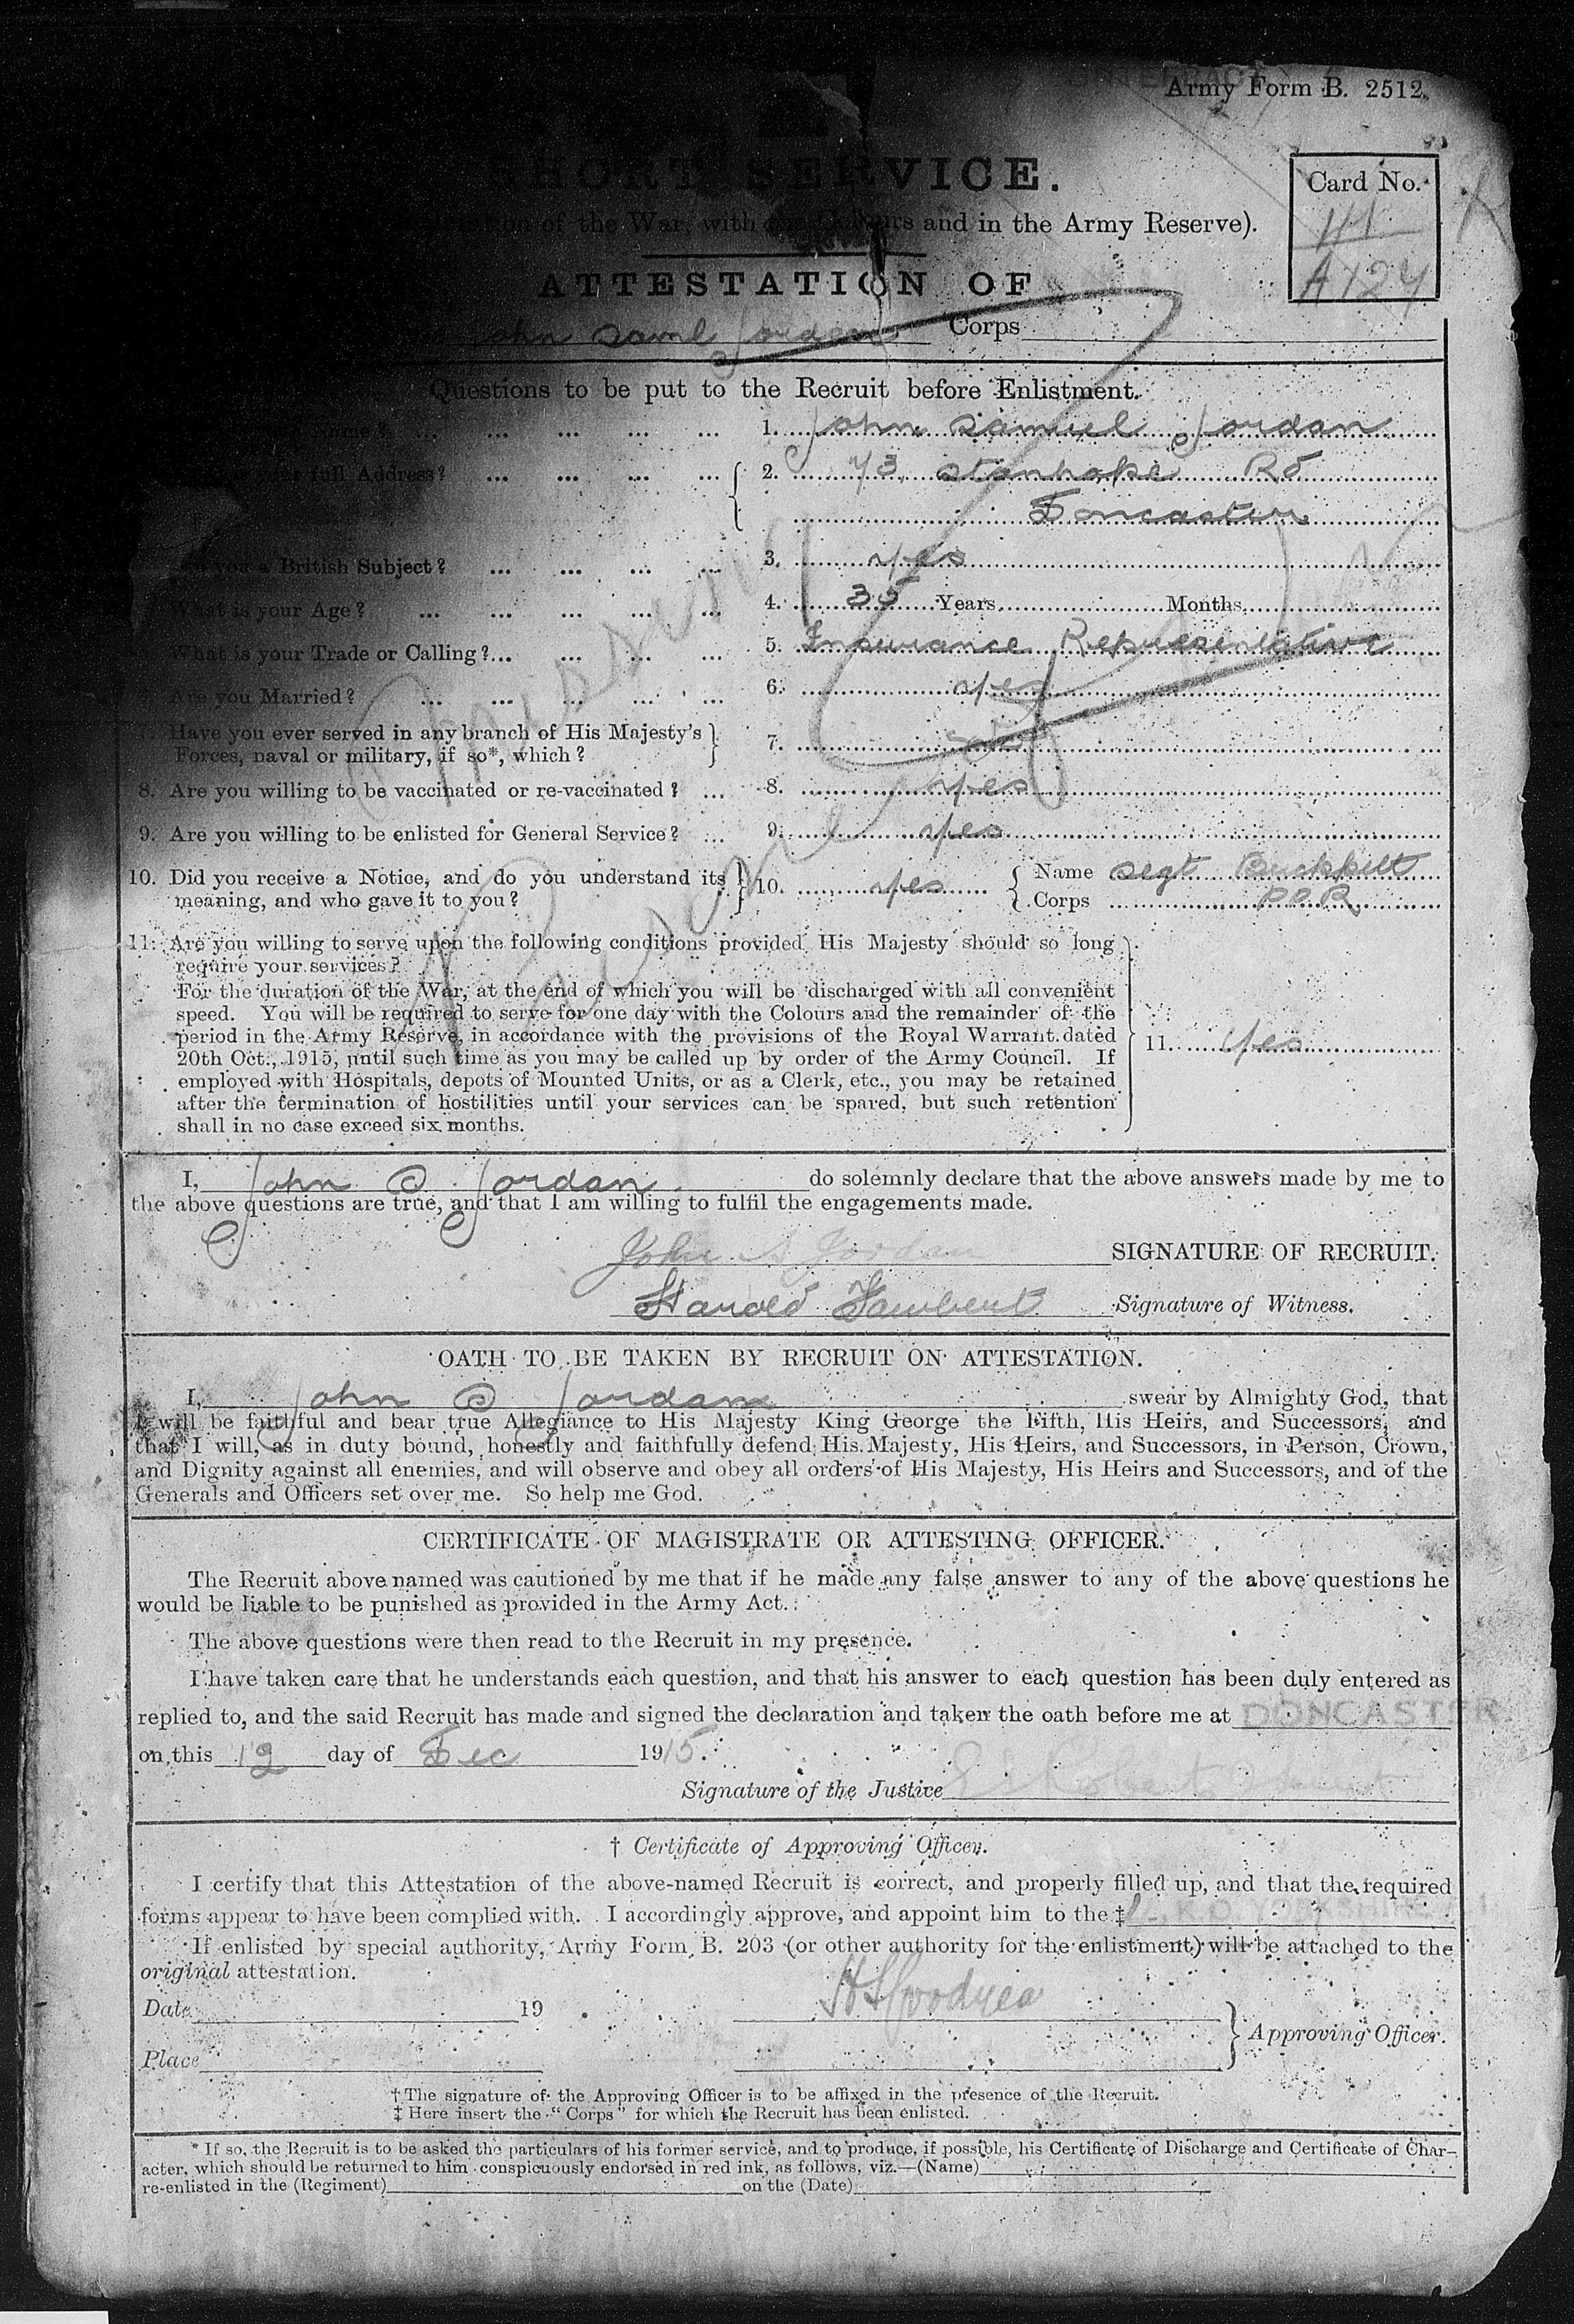 Army Form B. 2512.
SHORT SERVICE.
of the War, with the Colours and in the Army Reserve).
Card No.
A 124
ATTESTATION OF
John Saml Jordan Corps
Questions to be put to the Recruit before Enlistment.
Name? ... ... ... ... ... 1. John Samuel Jordan
full Address? ... ... ... ... 2. 73 Stanhope Rd
Doncaster
you a British Subject? ... ... ... ... 3. yes
What is your Age? ... ... ... ... ... 4. 35 Years Months
What is your Trade or Calling?... ... ... ... 5. Insurance Representative
Are you Married? ... ... ... ... ... 6. yes
7. Have you ever served in any branch of His Majesty's
Forces, naval or military, if so*, which? 7.
8. Are you willing to be vaccinated or re-vaccinated? ... 8. yes
9. Are you willing to be enlisted for General Service? ... 9. yes
10. Did you receive a Notice, and do you understand its
meaning, and who gave it to you? 10. yes Name Segt
Corps
11. Are you willing to serve upon the following conditions provided His Majesty should so long
require your services?
For the duration of the War, at the end of which you will be discharged with all convenient
speed. You will be required to serve for one day with the Colours and the remainder of the
period in the Army Reserve, in accordance with the provisions of the Royal Warrant dated
20th Oct., 1915, until such time as you may be called up by order of the Army Council. If
employed with Hospitals, depots of Mounted Units, or as a Clerk, etc., you may be retained
after the termination of hostilities until your services can be spared, but such retention
shall in no case exceed six months.
11. yes
I, John S Jordan do solemnly declare that the above answers made by me to
the above questions are true, and that I am willing to fulfil the engagements made.
John S Jordan SIGNATURE OF RECRUIT.
Harold Signature of Witness.
OATH TO BE TAKEN BY RECRUIT ON ATTESTATION.
I, John S Jordan swear by Almighty God, that
I will be faithful and bear true Allegiance to His Majesty King George the Fifth, His Heirs, and Successors, and
that I will, as in duty bound, honestly and faithfully defend His Majesty, His Heirs, and Successors, in Person, Crown,
and Dignity against all enemies, and will observe and obey all orders of His Majesty, His Heirs and Successors, and of the
Generals and Officers set over me. So help me God.
CERTIFICATE OF MAGISTRATE OR ATTESTING OFFICER.
The Recruit above named was cautioned by me that if he made any false answer to any of the above questions he
would be liable to be punished as provided in the Army Act.
The above questions were then read to the Recruit in my presence.
I have taken care that he understands each question, and that his answer to each question has been duly entered as
replied to, and the said Recruit has made and signed the declaration and taken the oath before me at DONCASTER
on this 12 day of Dec 1915.
Signature of the Justice
† Certificate of Approving Officer.
I certify that this Attestation of the above-named Recruit is correct, and properly filled up, and that the required
forms appear to have been complied with. I accordingly approve, and appoint him to the ‡
If enlisted by special authority, Army Form B. 203 (or other authority for the enlistment) will be attached to the
original attestation.
Date 19
Approving Officer.
Place
† The signature of the Approving Officer is to be affixed in the presence of the Recruit.
‡ Here insert the "Corps" for which the Recruit has been enlisted.
* If so, the Recruit is to be asked the particulars of his former service, and to produce, if possible, his Certificate of Discharge and Certificate of Char-
acter, which should be returned to him conspicuously endorsed in red ink, as follows, viz.—(Name)
re-enlisted in the (Regiment) on the (Date)